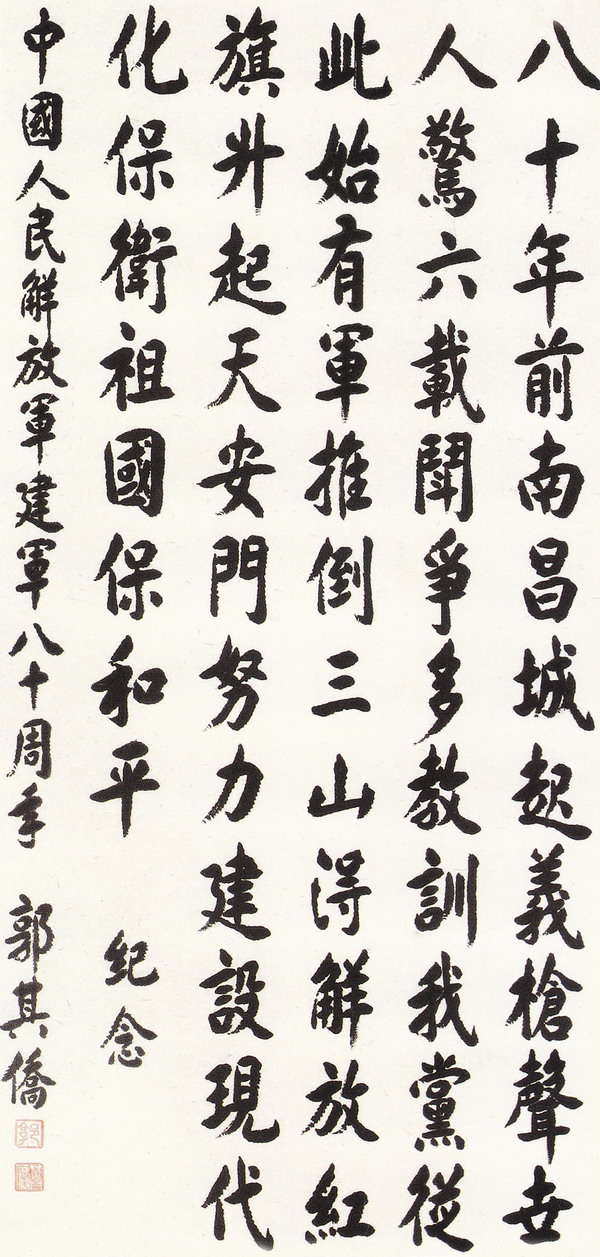 八十年前南昌城起義槍聲世
人驚六載鬪爭多教訓我黨從
此始有軍推倒三山得解放紅
旗升起天安門努力建設現代
化保衛祖國保和平 紀念
中國人民解放軍建軍八十周年 郭其僑